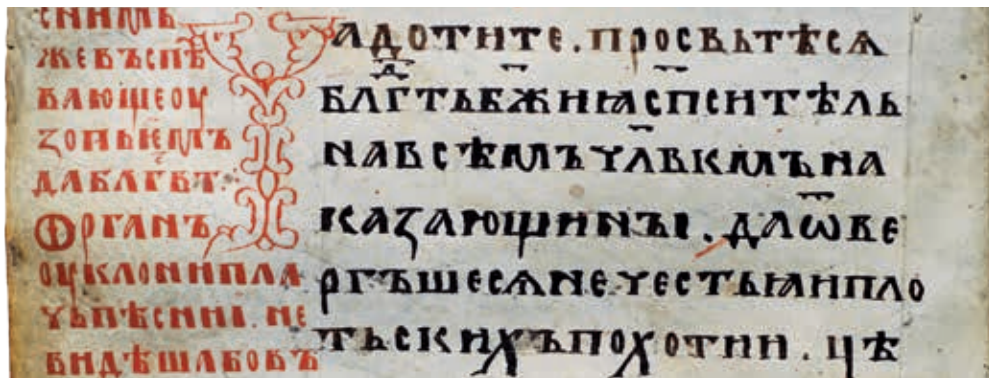 жевъспѣ
вающеоу
даблг҃вт.
Ѻрганъ
оуклонипла
чьпѣснии. не
видѣшабовъ
Чадотите. просвьтѣсѧ
бл҃гⷣтьбж҃иꙗсп҃сеитѣль
навсѣмъчл҃вкмъна
казающинꙑ. даѿве
ргъшесѧнечестьꙗипло
тьскихъпохотии. цѣ